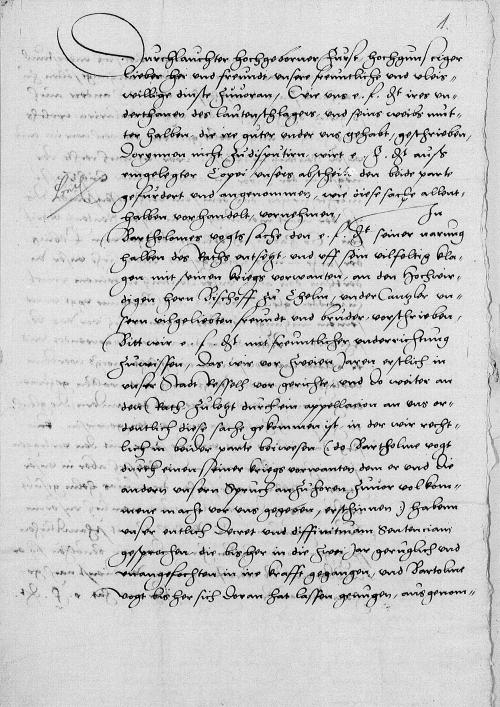 1.
Durchlauchter hochgeborner Furst hochgunstiger
lieber her und freundt, unsere freuntliche und vleis-
willige dinste zuvoran, Wie uns e. f. gt ires un-
derthanen des lautenschlagers, und seins weibs mut-
ter halben, die ire guter under uns gehabt, geschrieben,
Dorymen nicht zudisputirn, wirt e. f. gt aufs
eingelegter Copei unsers abscheits, den beide parte
gefurdert und angenommen, wie diese sache allent-
halben vorhandelt, vornehmen, In
Bartholomes vogts sache den e. f. gt seiner narung
halben des Raths entsetzt, und uff sein vilfeltig kla-
gen mit seinen kriegs vorwanten, an den Hochwir-
digen hern Bischoff zu Chelm, under Cantzler un-
sern vilgeliebten freundt und bruder, vorschrieben,
Bitt wir e. f. gt mit freuntlicher underrichtung
zuwissen, Das wir vor zweien Jaren erstlich in
unser Stadt Ressell vor gerichte, und do weiter an
den Rath, zuletzt durch ein appellacion an uns or-
dentlich diese sache gekommen ist, in der wir recht-
lich in beider parte beiwesen (do Bartholme vogt
durch einen seiner kriegs vorwanten, dem er und die
andern unsern Spruch anzuhoren zuvor volkom-
mene macht vor uns gegeben, erschinnen,) habenn
unser entlich Decret und diffinitivam Sententiam
gesprochen die bis her in die zwei Jar geruglich und
unangefochten in ire krafft gegangen, und Bartolme
vogt bis her sich doran hat lassen genugen, ausgenom-